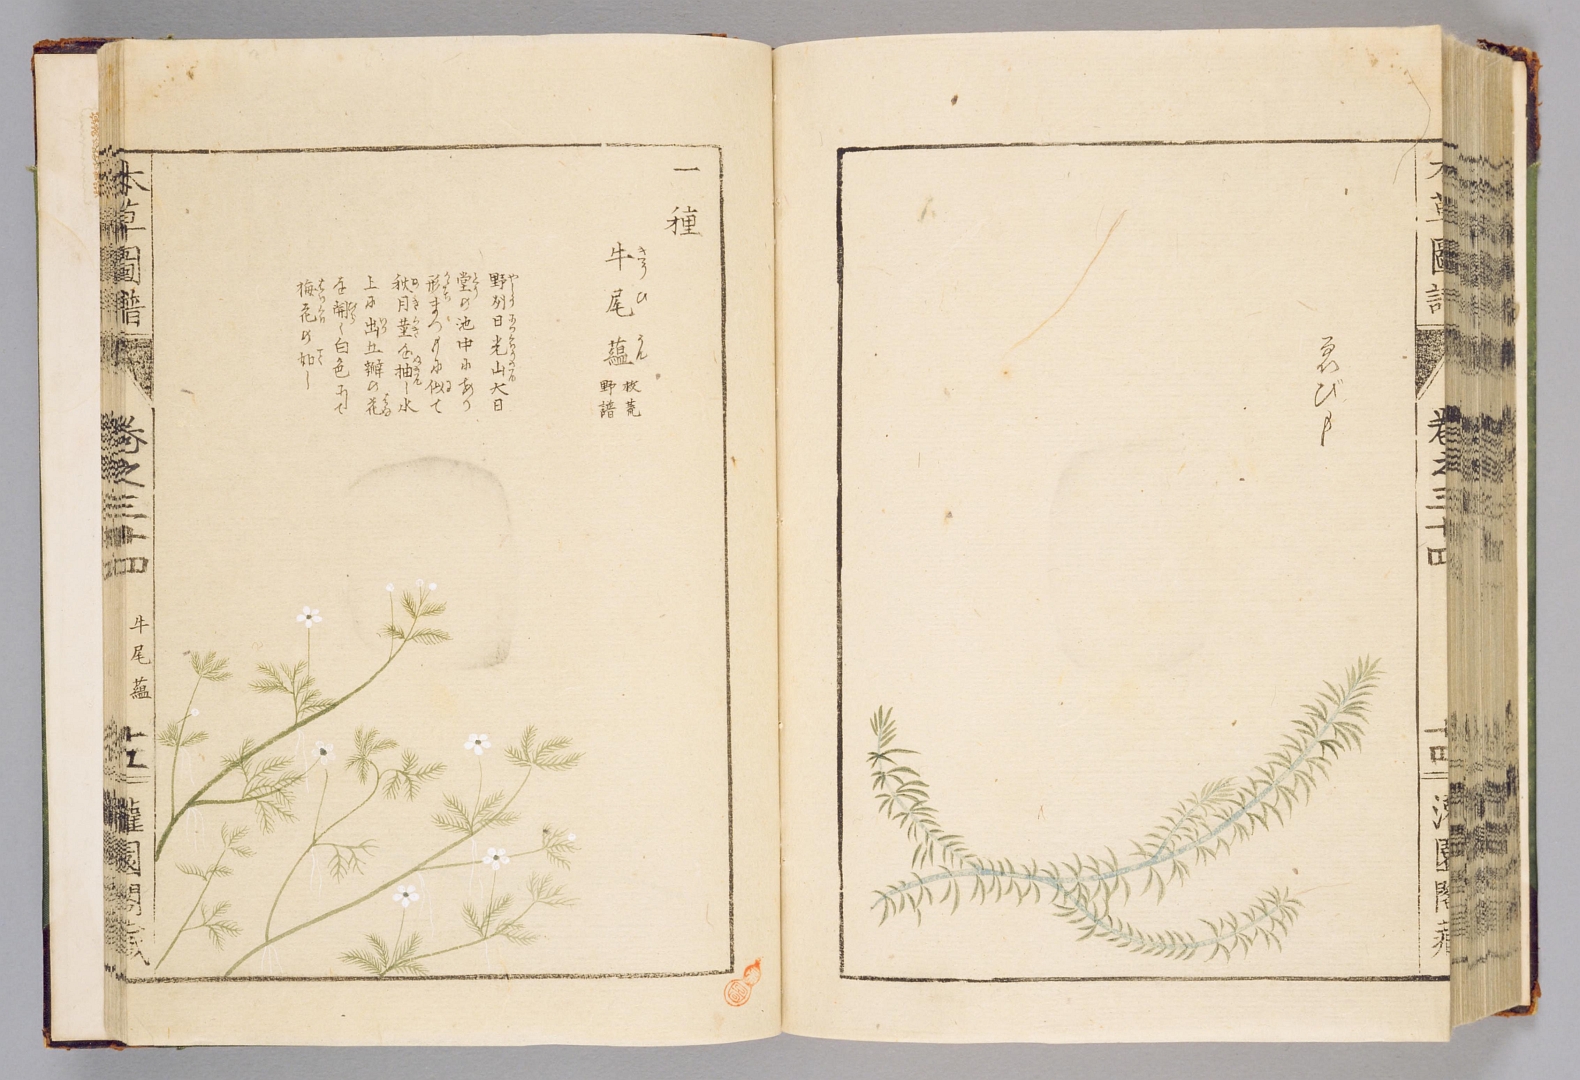 ゑびも
本草圖譜 卷之三十四 十四 灌園閣藏
一種
牛尾蘊 救荒野譜
きうひうん
野州日光山大日
堂の池中にあり
形まつもに似て
秋月莖を抽し水
上に出五瓣の花
を開く白色にて
梅花の如し
本草圖譜 卷之三十四 牛尾蘊 十五 灌園閣藏